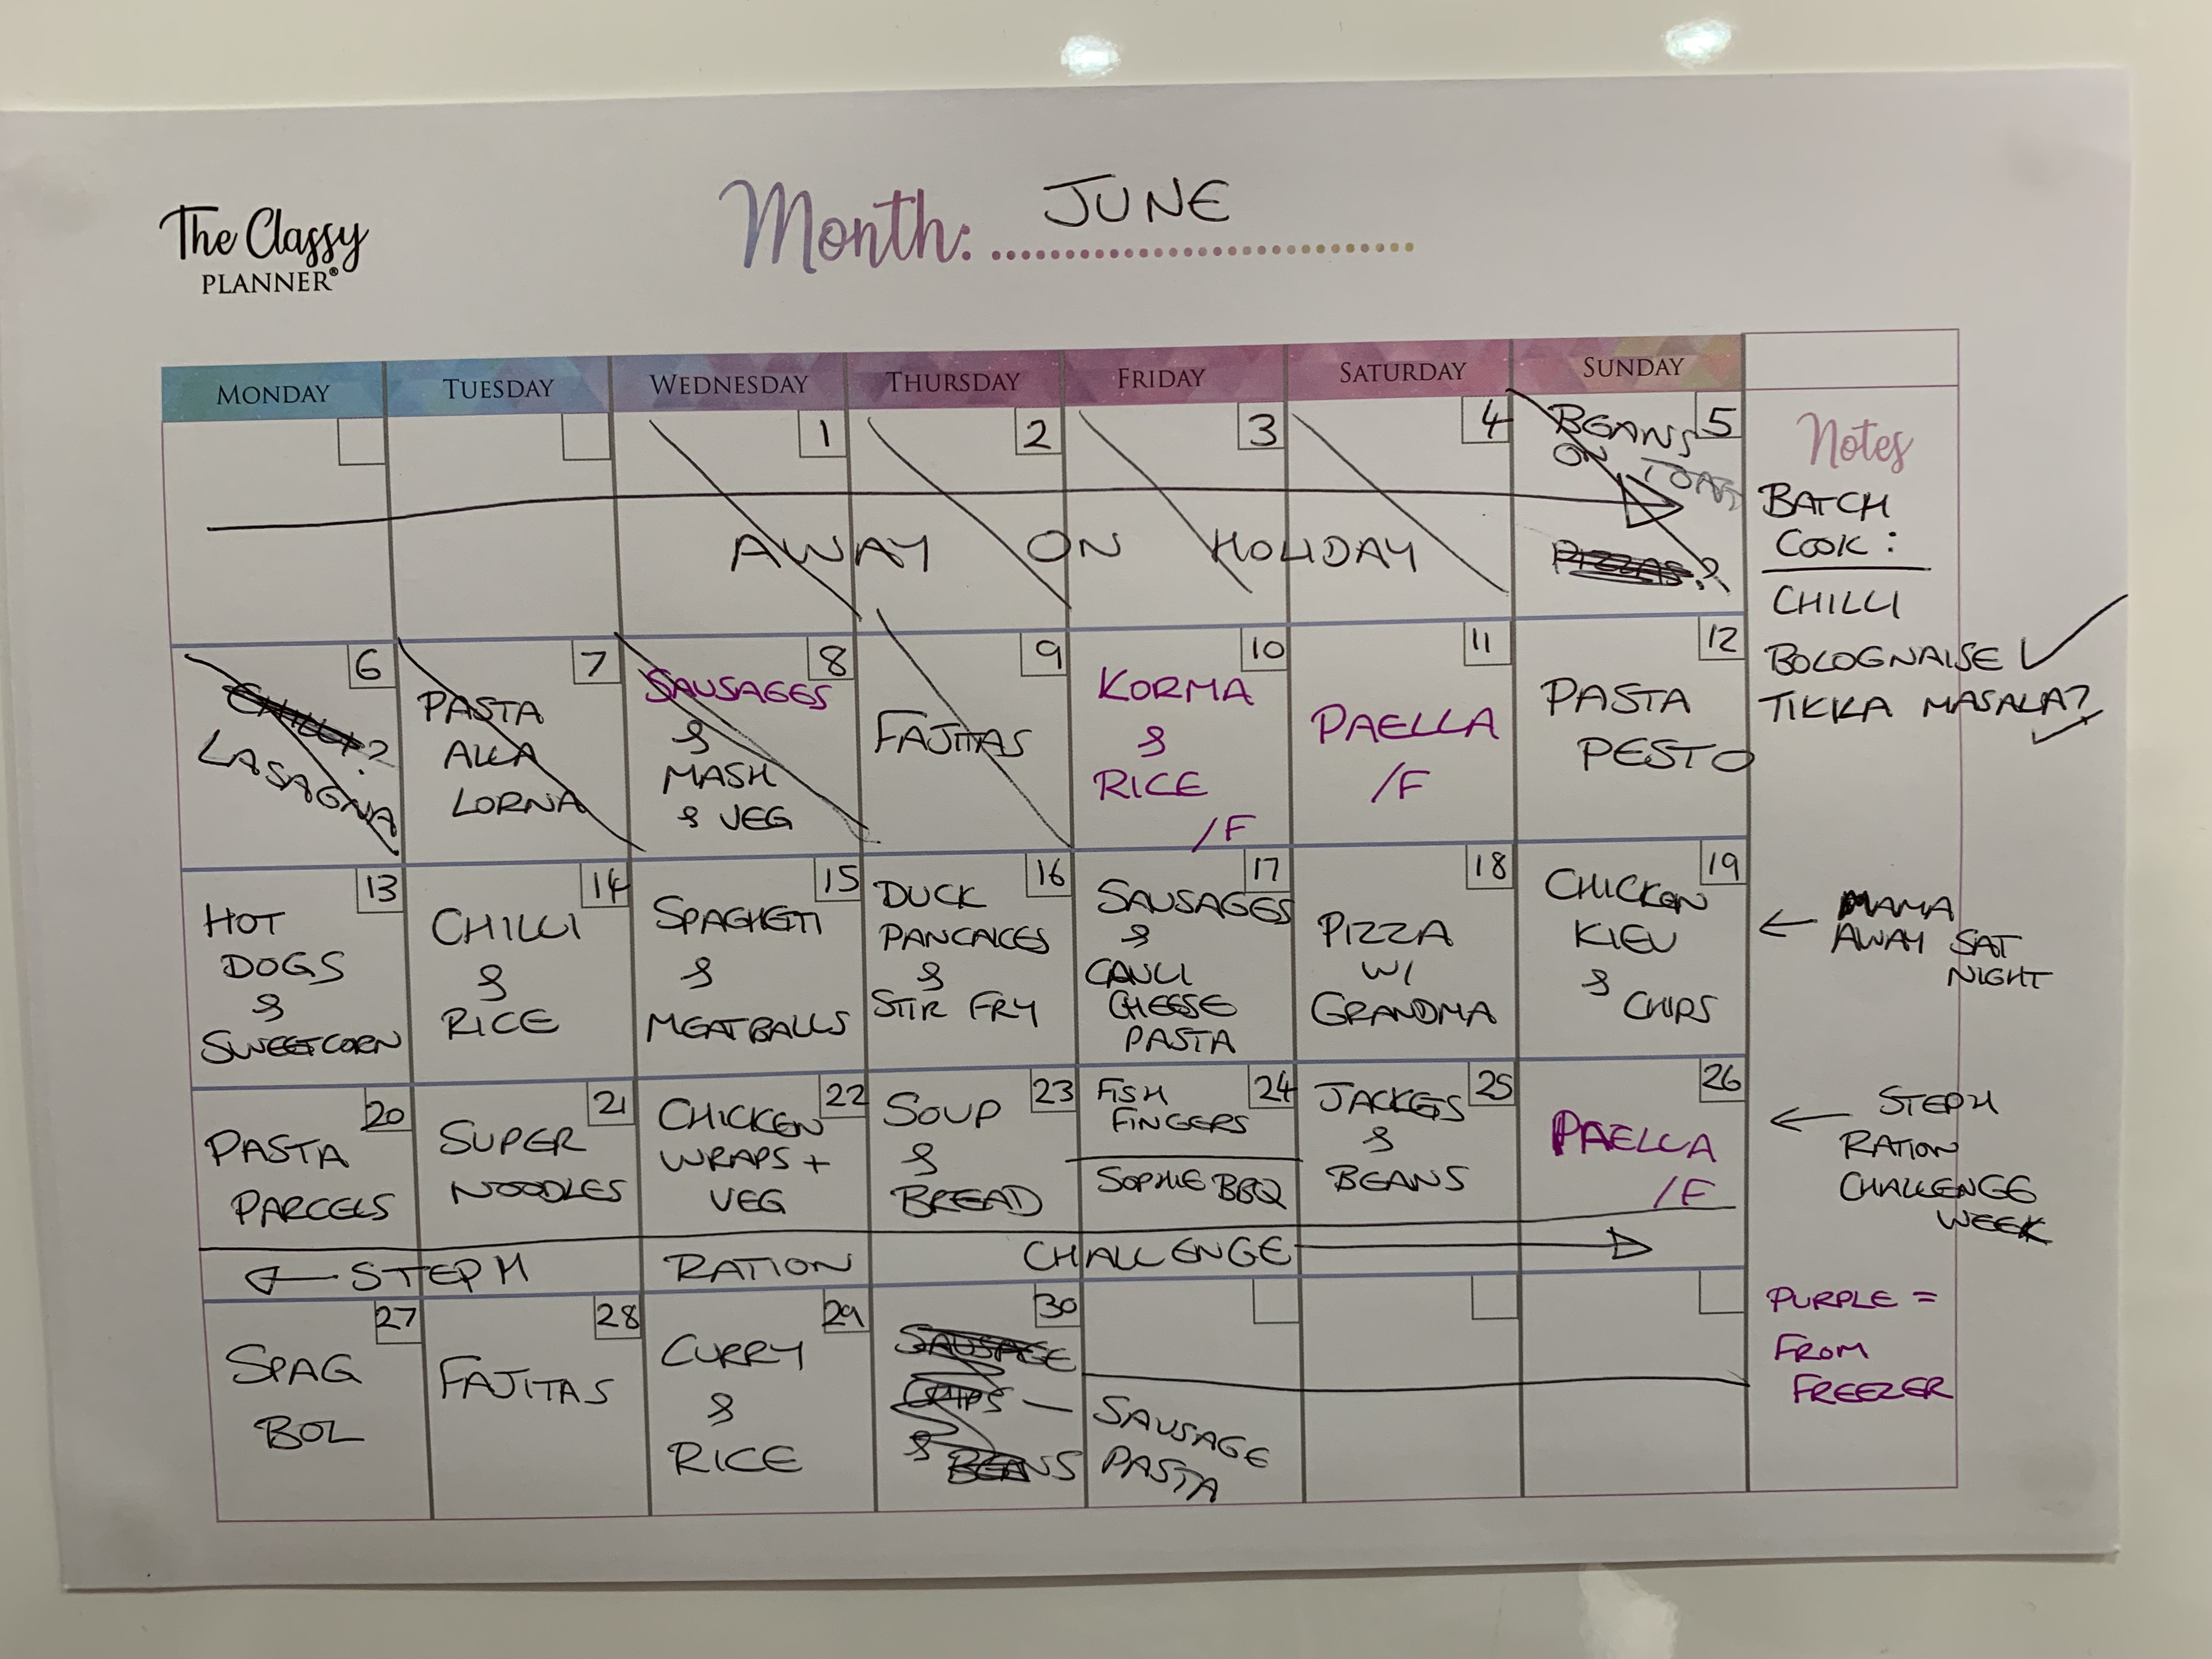 The Classy
PLANNER®
Month: JUNE
MONDAY TUESDAY WEDNESDAY THURSDAY FRIDAY SATURDAY SUNDAY
1 2 3 4 5
BEANS
ON TOAST
AWAY ON HOLIDAY
PIZZAS?
6
CHILLI?
LASAGNA
7
PASTA
ALLA
LORNA
8
SAUSAGES
&
MASH
& VEG
9
FAJITAS
10
KORMA
&
RICE
/F
11
PAELLA
/F
12
PASTA
PESTO
13
HOT
DOGS
&
SWEETCORN
14
CHILLI
&
RICE
15
SPAGHETTI
&
MEATBALLS
16
DUCK
PANCAKES
&
STIR FRY
17
SAUSAGES
&
CAULI
CHEESE
PASTA
18
PIZZA
W/
GRANDMA
19
CHICKEN
KIEV
& CHIPS
20
PASTA
PARCELS
21
SUPER
NOODLES
22
CHICKEN
WRAPS +
VEG
23
SOUP
&
BREAD
24
FISH
FINGERS
SOPHIE BBQ
25
JACKETS
&
BEANS
26
PAELLA
/F
← STEPH RATION CHALLENGE →
27
SPAG
BOL
28
FAJITAS
29
CURRY
&
RICE
30
SAUSAGE
CHIPS —
& BEANS
SAUSAGE
PASTA
Notes
BATCH
COOK:
CHILLI
BOLOGNAISE ✓
TIKKA MASALA? ✓
← MAMA
AWAY SAT
NIGHT
← STEPH
RATION
CHALLENGE
WEEK
PURPLE =
FROM
FREEZER